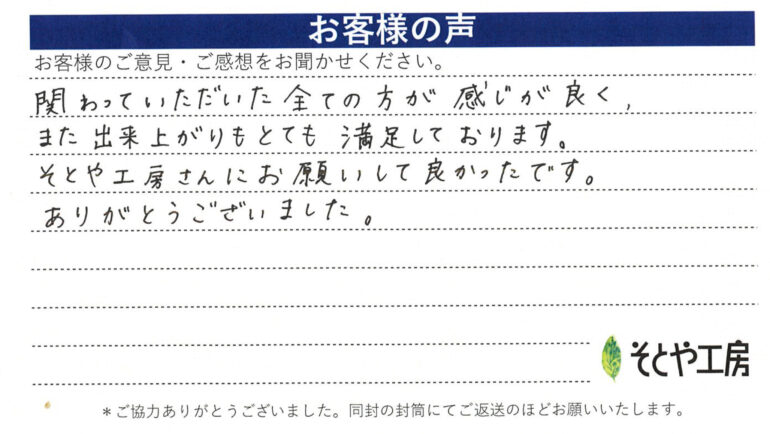 お客様の声
お客様のご意見・ご感想をお聞かせください。
関わっていただいた全ての方が感じが良く,
また出来上がりもとても満足しております。
そとや工房さんにお願いして良かったです。
ありがとうございました。
そとや工房
＊ご協力ありがとうございました。同封の封筒にてご返送のほどお願いいたします。